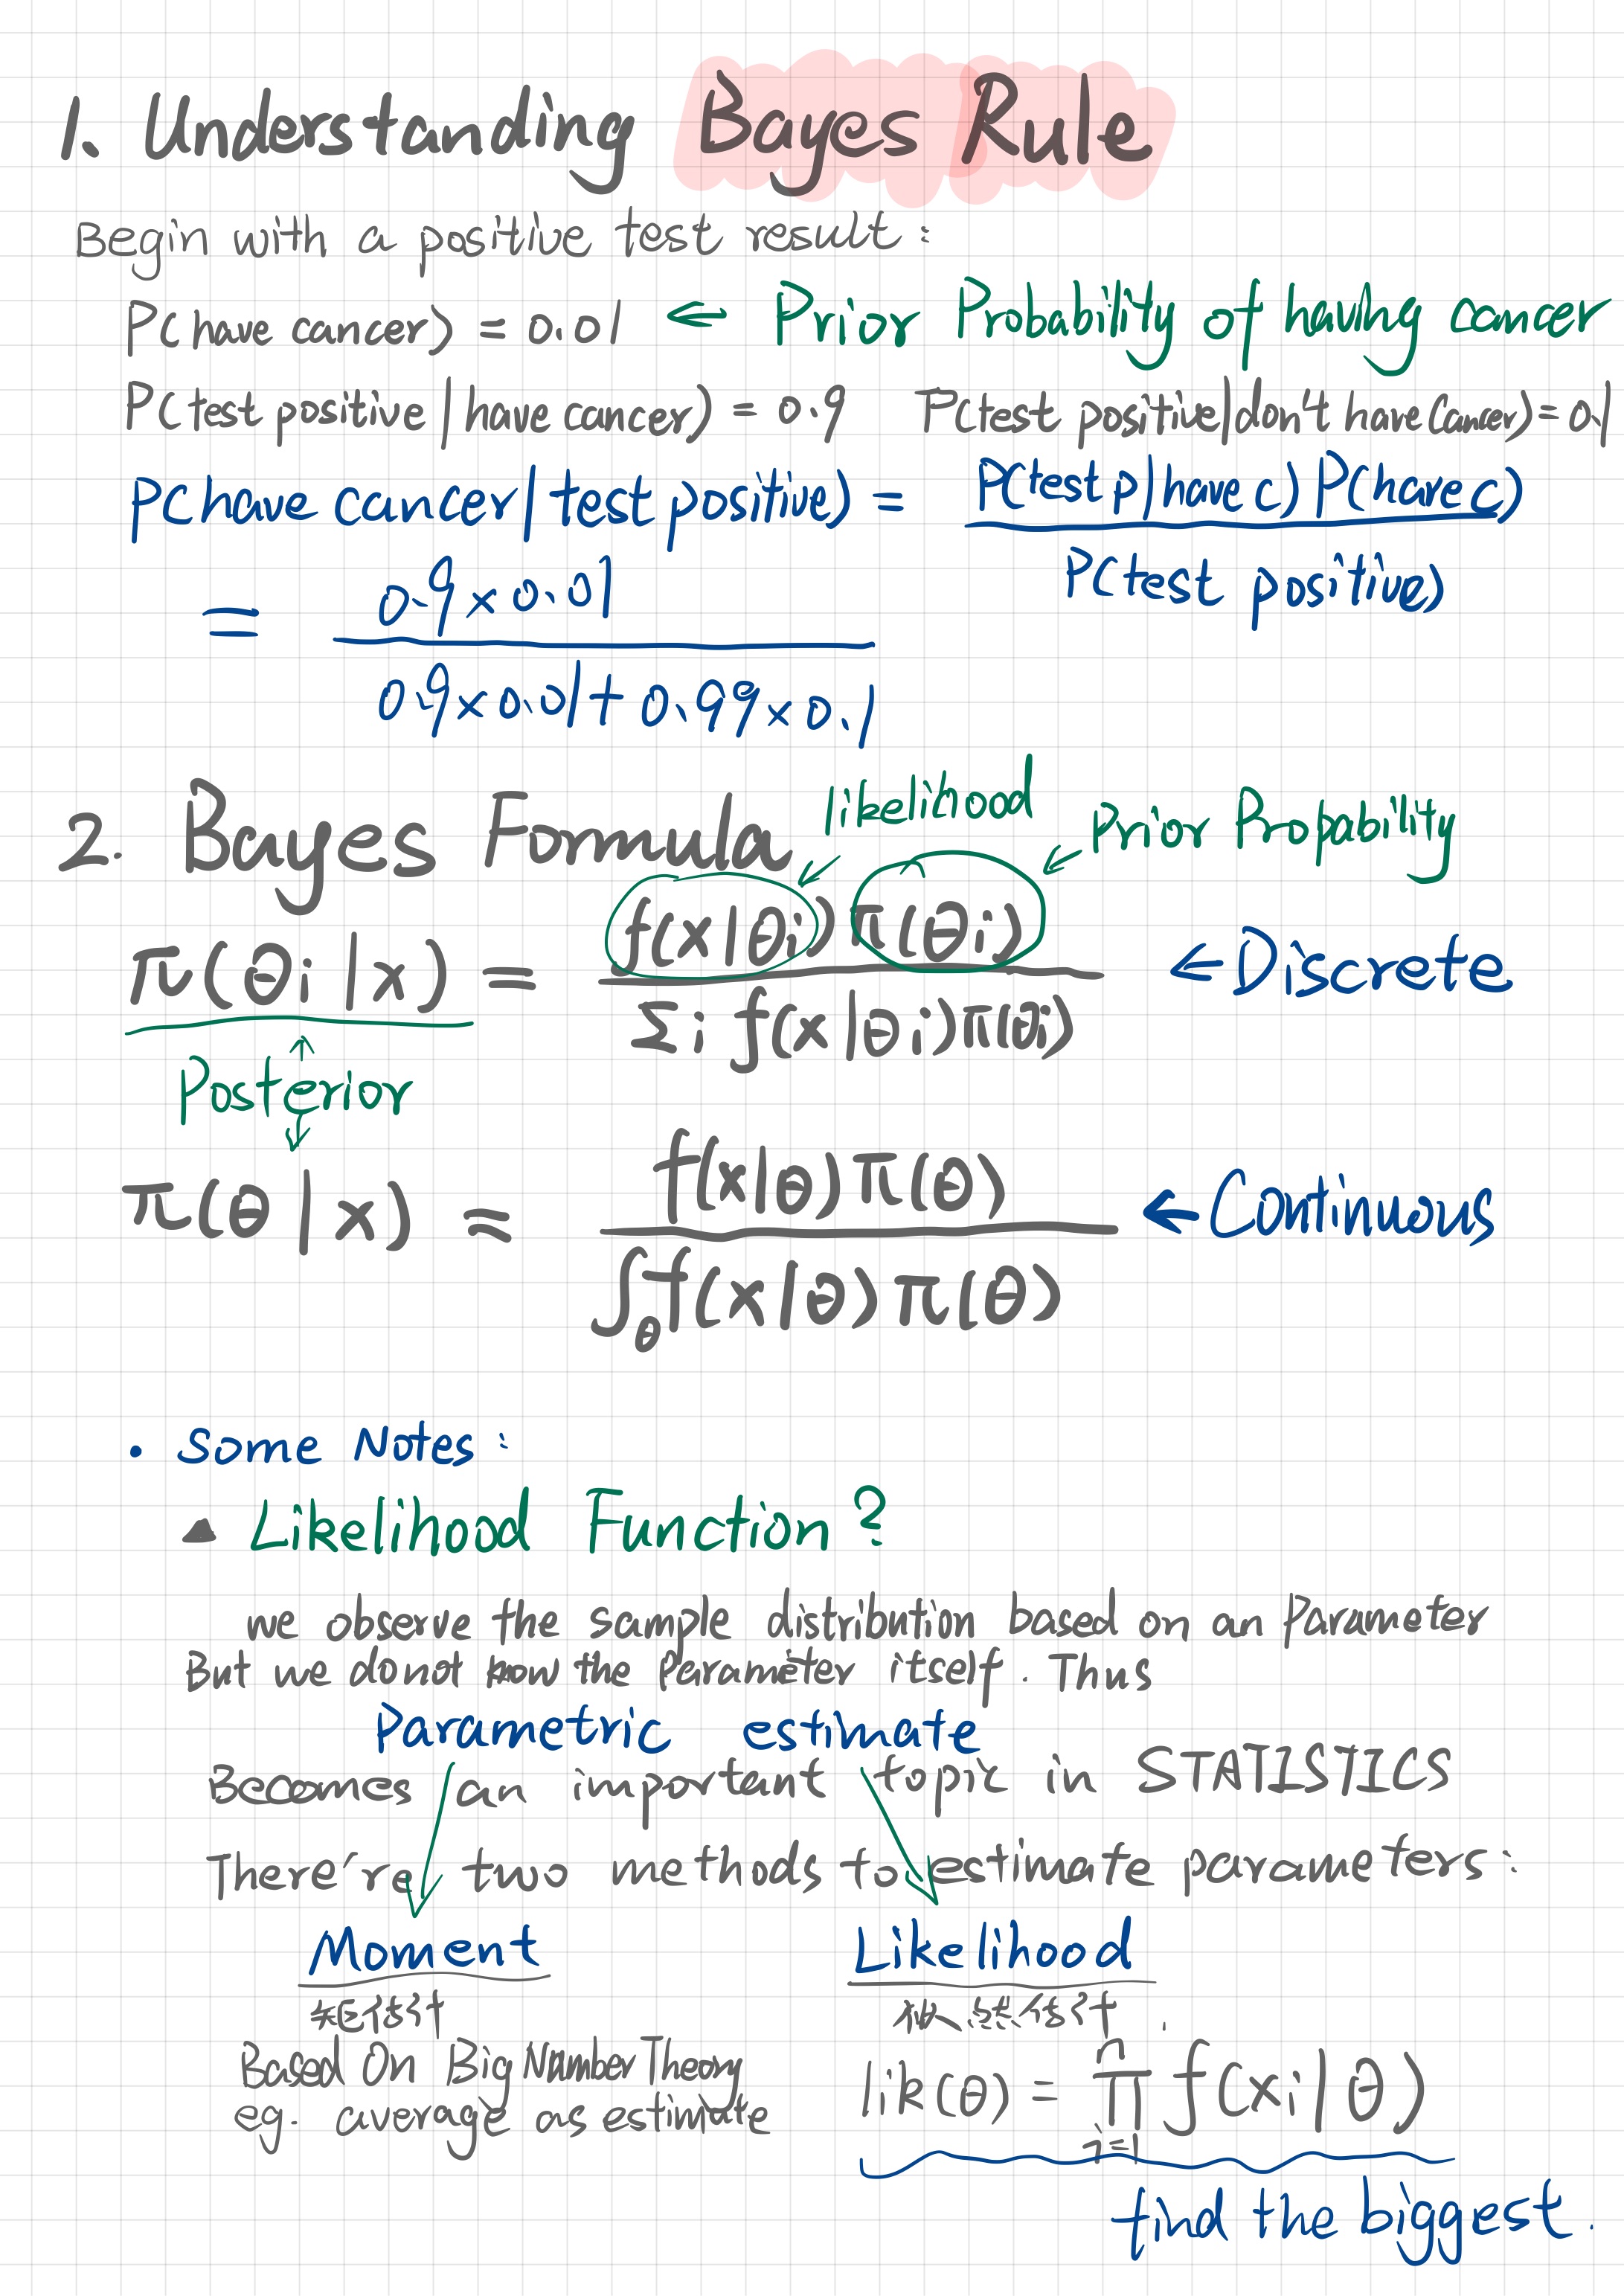 1. Understanding Bayes Rule
Begin with a positive test result :
P(have cancer) = 0.01 ← Prior Probability of having cancer
P(test positive | have cancer) = 0.9 P(test positive|don't have Cancer) = 0.1
P(have cancer | test positive) = P(test p | have c) P(have c)
P(test positive)
= 0.9 × 0.01
0.9 × 0.01 + 0.99 × 0.1
likelihood
Prior Propability
2. Bayes Formula
π(θi | x) = f(x | θi) π(θi) ← Discrete
Σi f(x | θi) π(θi)
Posterior
π(θ | x) ≈ f(x | θ) π(θ) ← Continuous
∫θ f(x | θ) π(θ)
• Some Notes :
▲ Likelihood Function ?
we observe the sample distribution based on an Parameter
But we do not know the Parameter itself. Thus
Parametric estimate
Becomes an important topic in STATISTICS
There're two methods to estimate parameters :
Moment Likelihood
矩估计 极大似然估计
Based On Big Number Theory
eg. average as estimate
lik(θ) = ∏ⁿᵢ₌₁ f(xi | θ)
find the biggest.